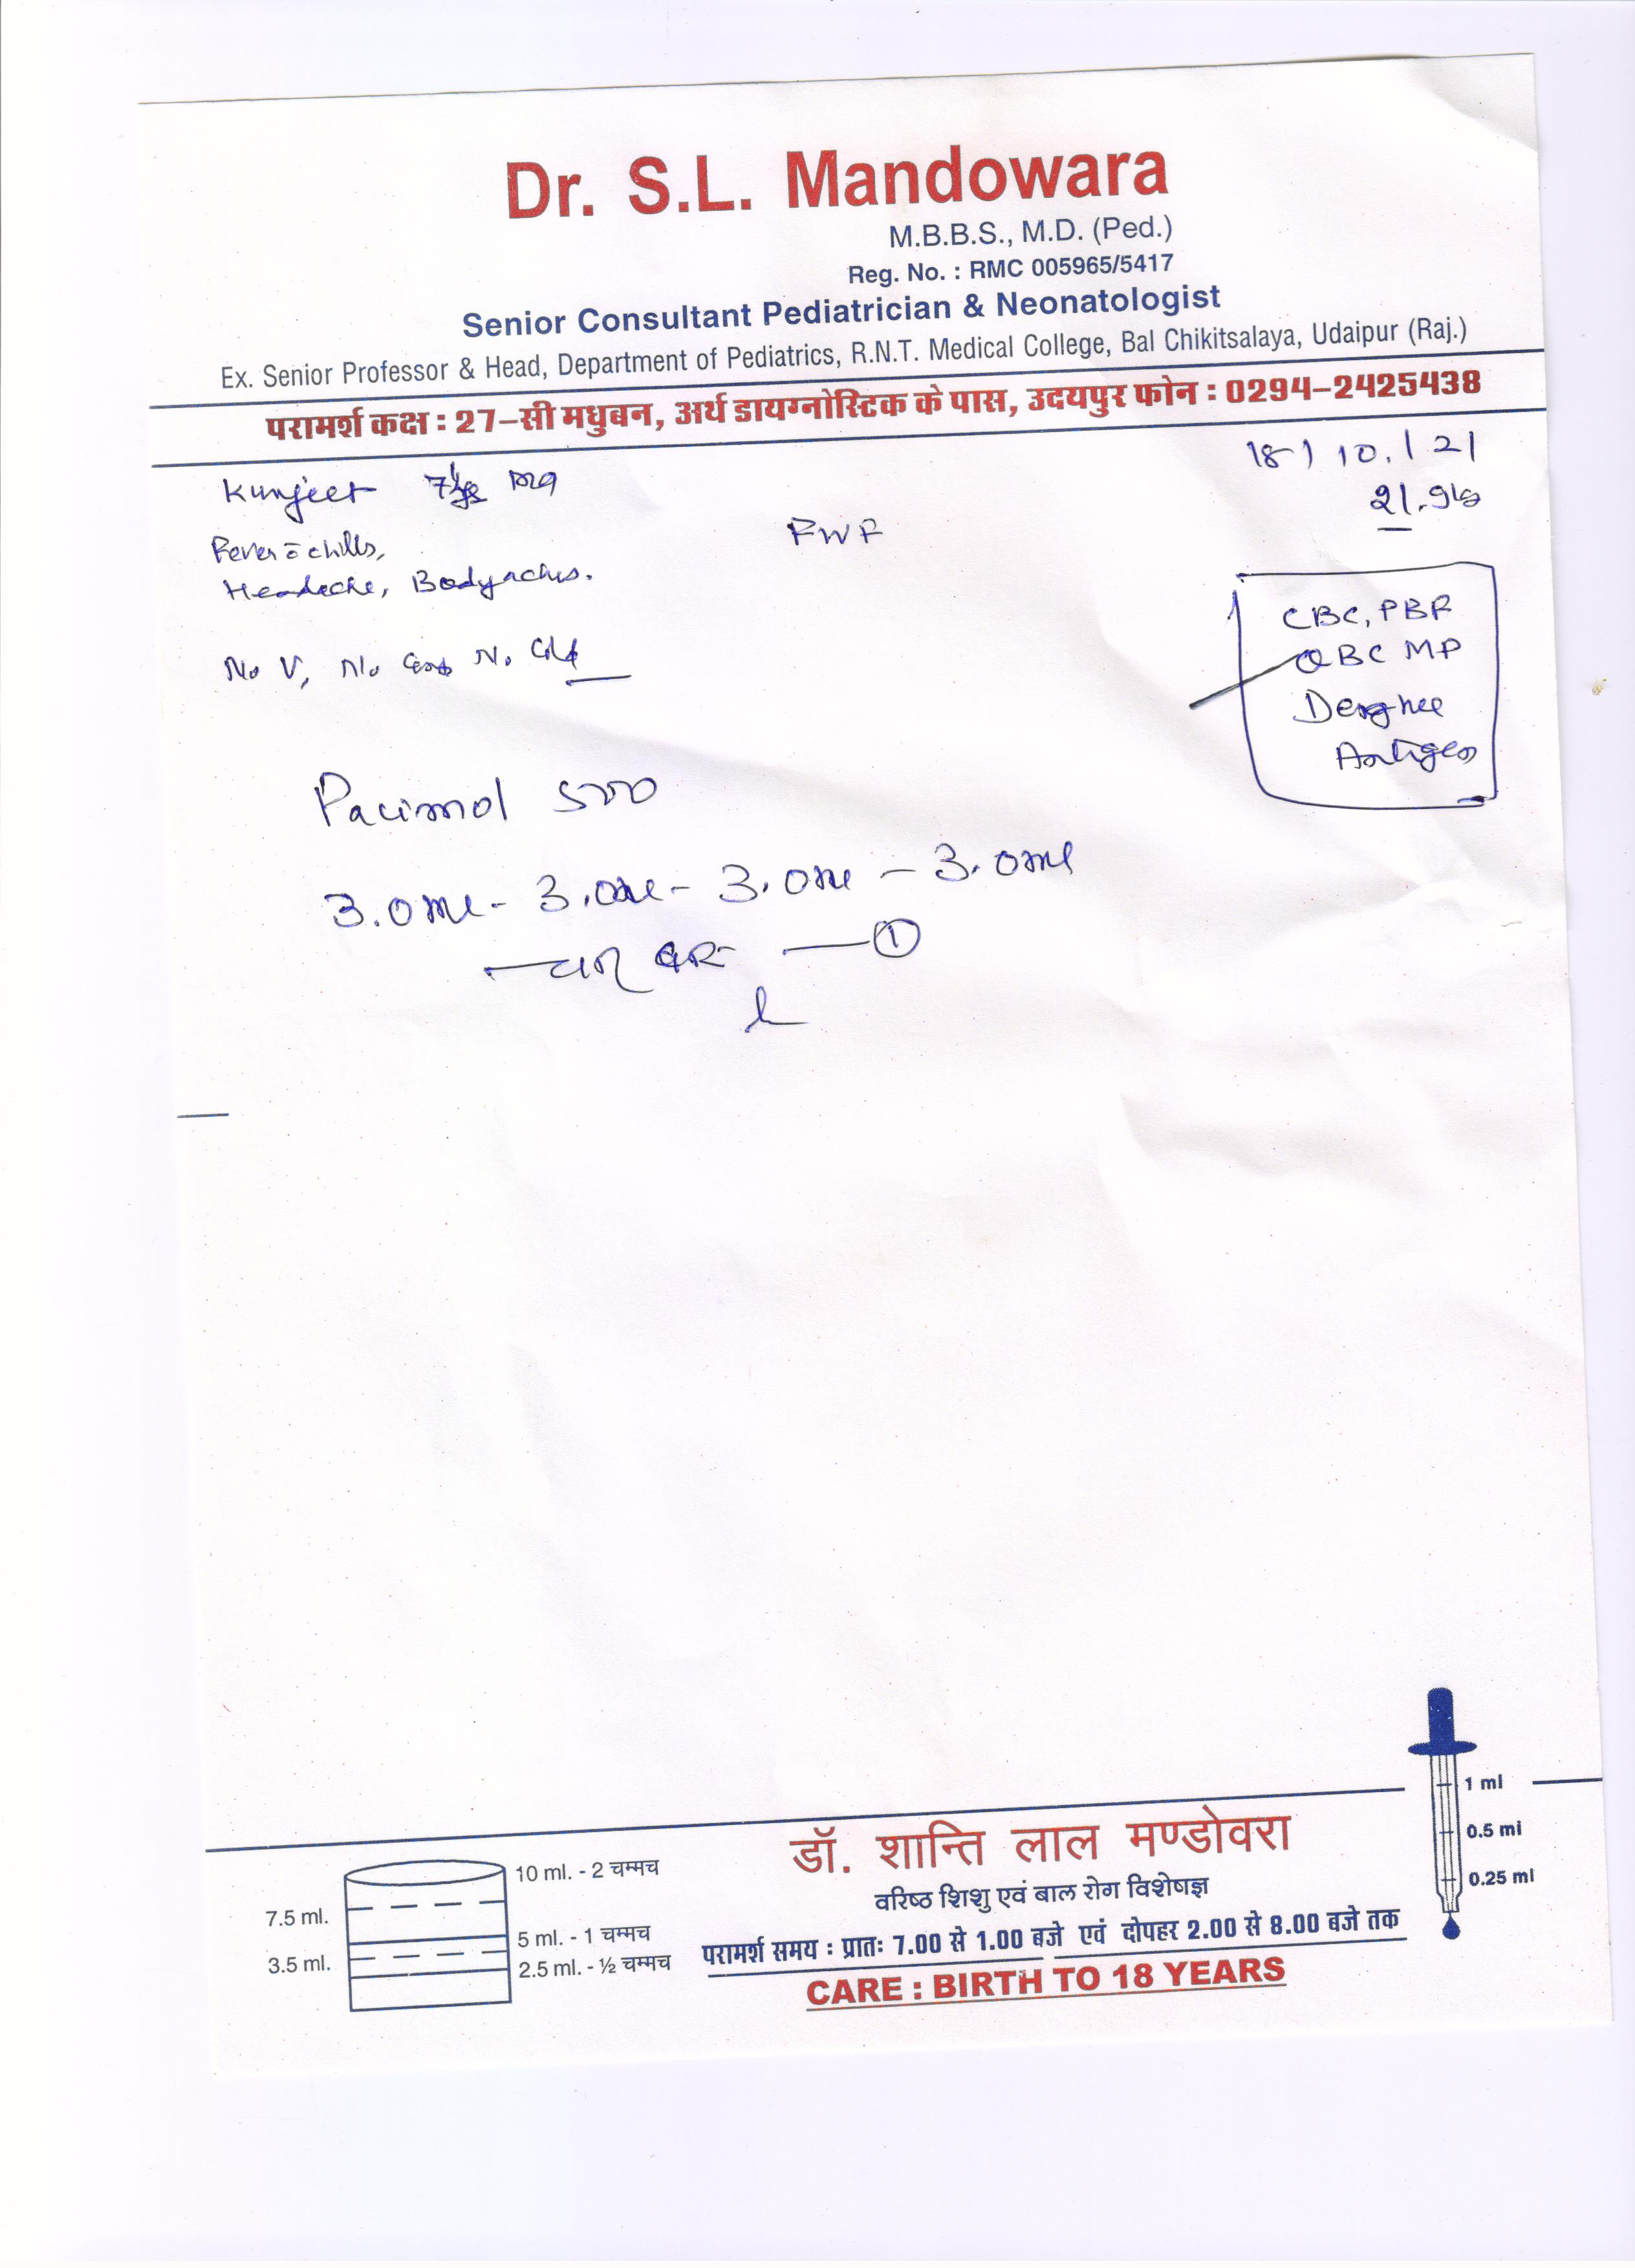 Dr. S.L. Mandowara
M.B.B.S., M.D. (Ped.)
Reg. No. : RMC 005965/5417
Senior Consultant Pediatrician & Neonatologist
Ex. Senior Professor & Head, Department of Pediatrics, R.N.T. Medical College, Bal Chikitsalaya, Udaipur (Raj.)
परामर्श कक्ष : 27-सी मधुबन, अर्थ डायग्नोस्टिक के पास, उदयपुर फोन : 0294-2425438
18) 10. | 21
Kunjeet
21.9kg
FWF
Fever c chills,
Headache, Bodyaches.
CBC, PBF
QBC MP
Denghee
Antigen
No V, No N. Cold
Pacimol 500
3.0ml - 3.0ml - 3.0ml - 3.0ml
चार बार — 1
1 ml
0.5 ml
0.25 ml
10 ml. - 2 चम्मच
7.5 ml.
5 ml. - 1 चम्मच
3.5 ml.
2.5 ml. - ½ चम्मच
डॉ. शान्ति लाल मण्डोवरा
वरिष्ठ शिशु एवं बाल रोग विशेषज्ञ
परामर्श समय : प्रातः 7.00 से 1.00 बजे एवं दोपहर 2.00 से 8.00 बजे तक
CARE : BIRTH TO 18 YEARS